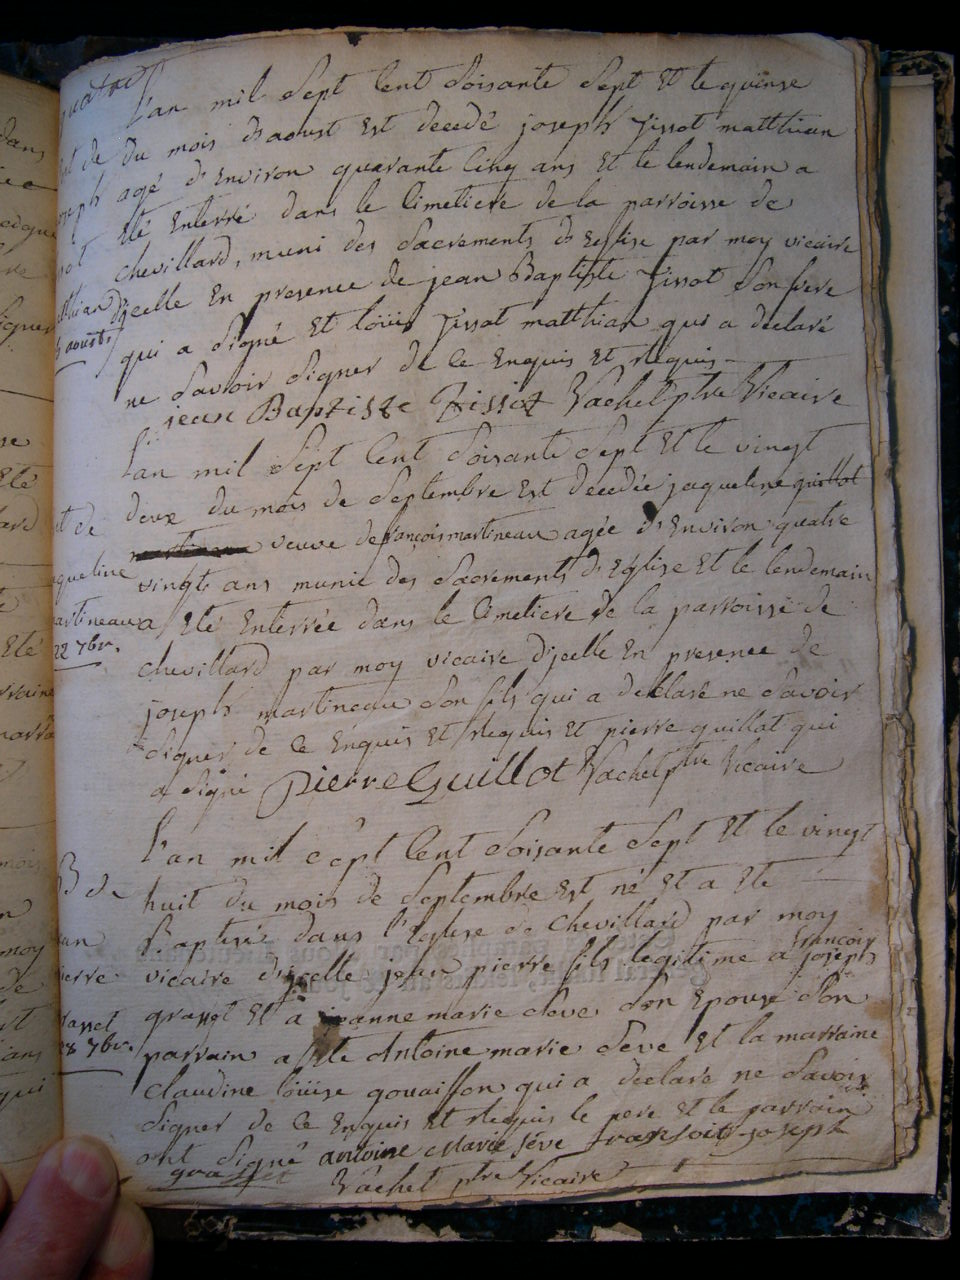 quatre
L'an mil Sept Cent Soisante Sept Et le quinse
du mois daoust Est decedé joseph Tissot matthian
agé d'Environ quarante Cinq ans Et le lendemain a
Eté Enterré dans le Cimetiere de la parroisse de
chevillard, muni des Sacrements d'Eglise par moy vicaire
d'jcelle En presence de jean Baptiste Tissot Son frere
qui a Signé Et loüis Tissot matthian qui a declaré
ne Savoir Signer de Ce Enquis Et Requis
jean Baptiste Tissot Vachel ptre Vicaire
L'an mil Sept Cent Soisante Sept Et le vingt
deux du mois de Septembre Est decedée jaqueline guillot
veuve de françois martineau agée d'Environ quatre
vingt ans munie des Sacrements d'Eglise Et le lendemain
a Eté Enterrée dans le Cimetiere de la parroisse de
chevillard par moy vicaire d'jcelle En presence de
joseph martineau Son fils qui a declaré ne Savoir
Signer de Ce Enquis Et Requis Et pierre guillot qui
a Signé Pierre Guillot Vachel ptre Vicaire
22 7br.
L'an mil Sept Cent Soisante Sept Et le vingt
huit du mois de Septembre Est né Et a Eté
Baptisé dans l'Eglise de Chevillard par moy
vicaire d'jcelle jean pierre fils legitime a françois joseph
grasset Et a jeanne marie Seve Son Epouse Son
parrain a Eté Antoine marie Seve Et la marraine
Claudine loüise gouaisson qui a declaré ne Savoir
Signer de Ce Enquis Et Requis le pere Et le parrain
ont Signé antoine Marie Seve fransois joseph
grasset Vachel ptre Vicaire
28 7br.